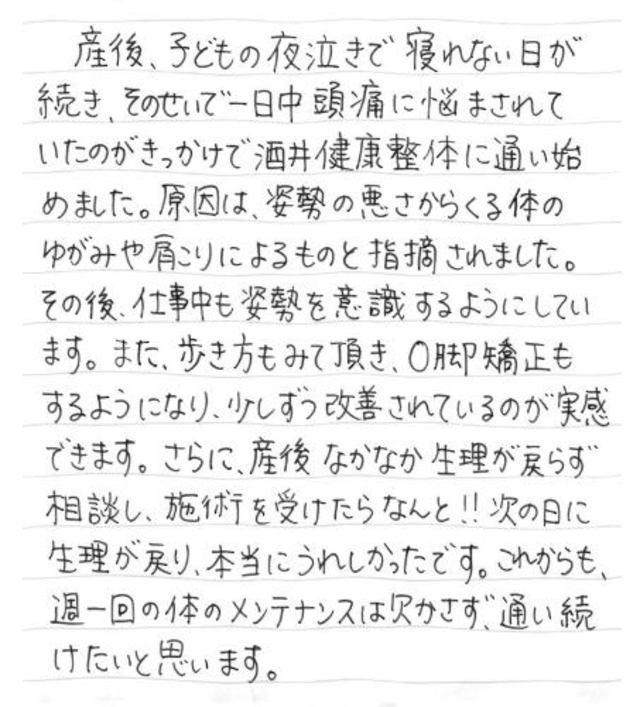 産後、子どもの夜泣きで寝れない日が
続き、そのせいで一日中頭痛に悩まされて
いたのがきっかけで酒井健康整体に通い始
めました。原因は、姿勢の悪さからくる体の
ゆがみや肩こりによるものと指摘されました。
その後、仕事中も姿勢を意識するようにしてい
ます。また、歩き方もみて頂き、O脚矯正も
するようになり、少しずつ改善されているのが実感
できます。さらに、産後なかなか生理が戻らず
相談し、施術を受けたらなんと!!次の日に
生理が戻り、本当にうれしかったです。これからも、
週一回の体のメンテナンスは欠かさず、通い続
けたいと思います。